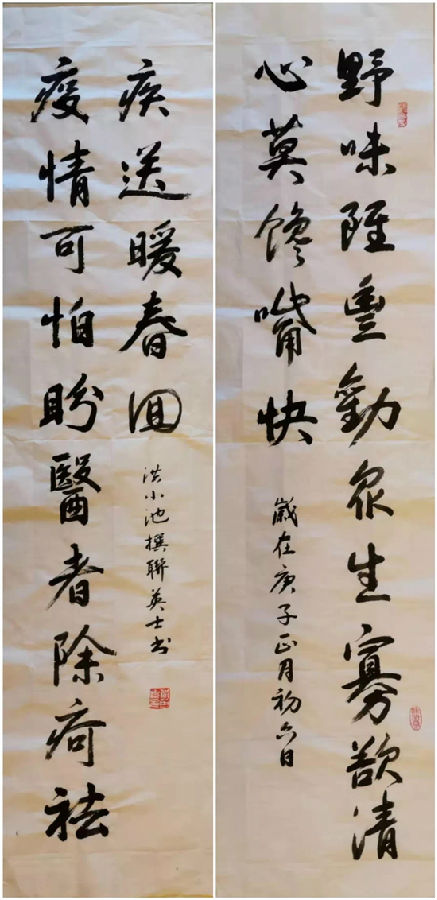 野味雖豐勸眾生寡欲清
心莫饞嘴快
歲在庚子正月初六日
疫情可怕盼醫者除疴祛
疾送暖春回
洪小池撰聯英士书